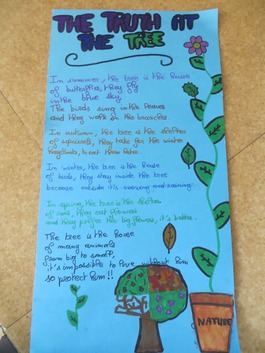 THE TRUTH AT
THE TREE
In summer, the tree is the house
of butterflies, they fly
in the blue sky.
The birds sing in the leaves
and they work in the branches.
In autumn, the tree is the shelter
of squirrels, they take for the winter
In winter, the tree is the house
of birds, they stay inside the tree
because outside it's snowing and raining.
In spring, the tree is the shelter
of ants, they eat flowers
and they prefer the big flowers, it's better.
The tree is the house
of many animals
From big to small,
it's impossible to live without him
so protect him!!
NATURE